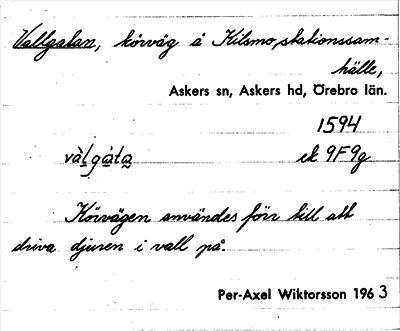 Vallgatan, körväg å Kilsmo stationssam-
hälle,
Askers sn, Askers hd, Örebro län.
1594
ek 9F9g
Körvägen användes förr till att
driva djuren i vall på.
Per-Axel Wiktorsson 1963